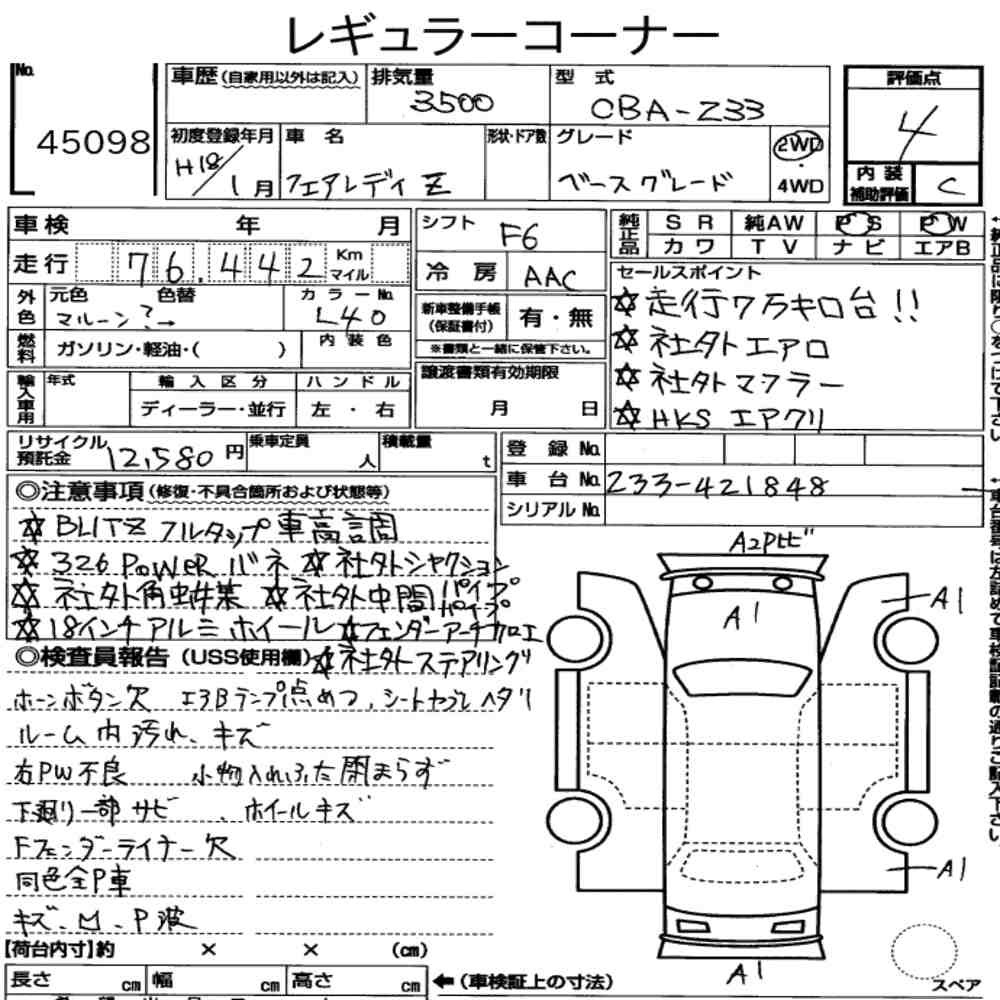 レギュラーコーナー
No. 45098
車歴 (自家用以外は記入)
排気量 3500
型式 CBA-Z33
評価点 4
初度登録年月 H18/1月
車名 フェアレディ Z
形状・ドア数
グレード ベースグレード
2WD・4WD
内装補助評価 C
車検 年 月
シフト F6
純正品 SR 純AW PS PW
カワ TV ナビ エアB
走行 76,442 Km マイル
冷房 AAC
セールスポイント
☆走行7万キロ台!!
☆社外エアロ
☆社外マフラー
☆HKS エアクリ
外色 元色 色替 カラーNo.
マルーン?→ L40
新車整備手帳(保証書付) 有・無
※書類と一緒に保管下さい。
燃料 ガソリン・軽油・( )
内装色
譲渡書類有効期限
月 日
輸入車用 年式 輸入区分 ハンドル
ディーラー・並行 左・右
リサイクル預託金 12,580円
乗車定員 人
積載量 t
登録No.
車台No. Z33-421848
シリアルNo.
◎注意事項(修復・不具合箇所および状態等)
☆BLITZ フルタップ車高調
☆326 POWER バネ ☆社外シャクション
☆社外角虫4集 ☆社外中間パイプ
☆18インチアルミホイール ☆フェンダーアーチ加工
◎検査員報告(USS使用欄) ☆社外ステアリング
ホーンボタン欠 エアBランプ点めつ、シートヤブレヘタリ
ルーム内汚れ、キズ
右PW不良 小物入れふた閉まらず
下廻り一部サビ、ホイールキズ
Fフェンダーライナー欠
同色全P車
キズ、凹、P波
【荷台内寸】約 × × (cm)
長さ cm 幅 cm 高さ cm
←(車検証上の寸法)
A2Pヒビ
A1
A1
A1
A1
スペア